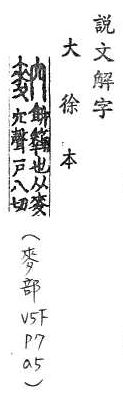 說文解字
大徐本
餅也从麥
穴聲戶八切
(麥部 V5F P7 a5)